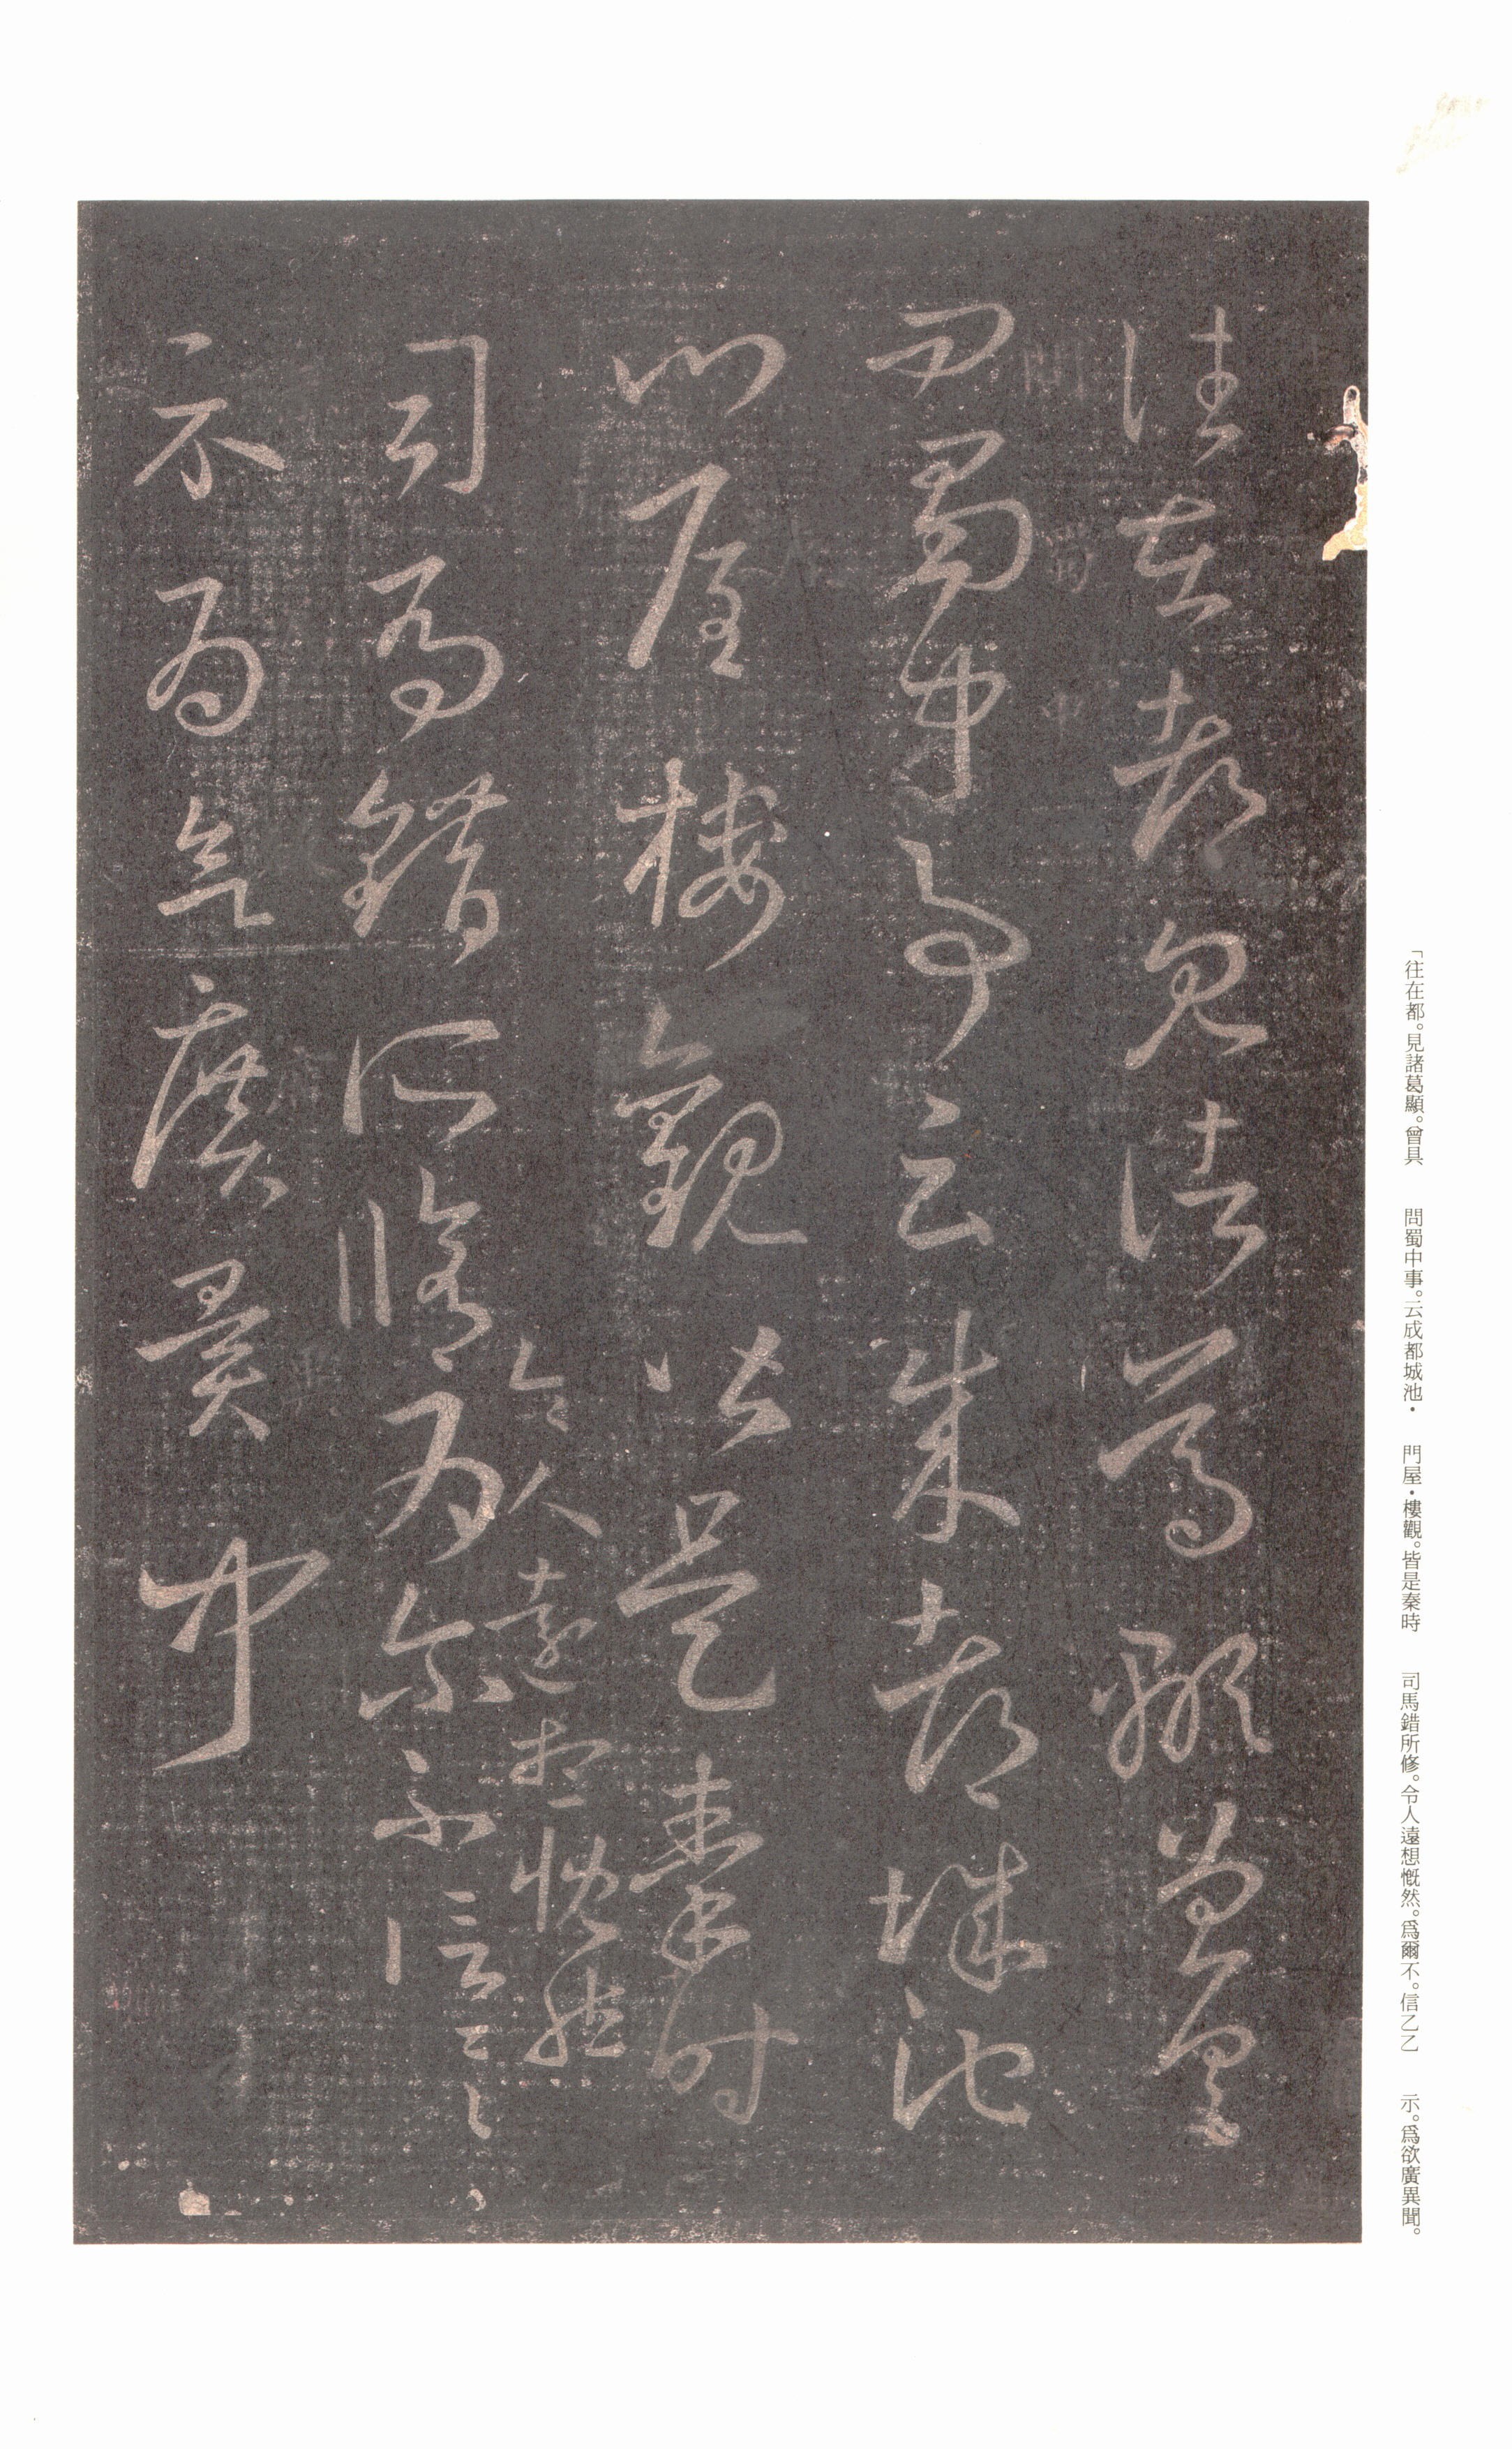 往在都見諸葛顯曾具
問蜀中事云成都城池
門屋樓觀皆是秦時
司馬錯所修令人遠想慨然為爾不信乙乙
示為欲廣異聞
「往在都。見諸葛顯。曾具　問蜀中事。云成都城池・　門屋・樓觀。皆是秦時　司馬錯所修。令人遠想慨然。爲爾不。信乙乙　示。爲欲廣異聞。